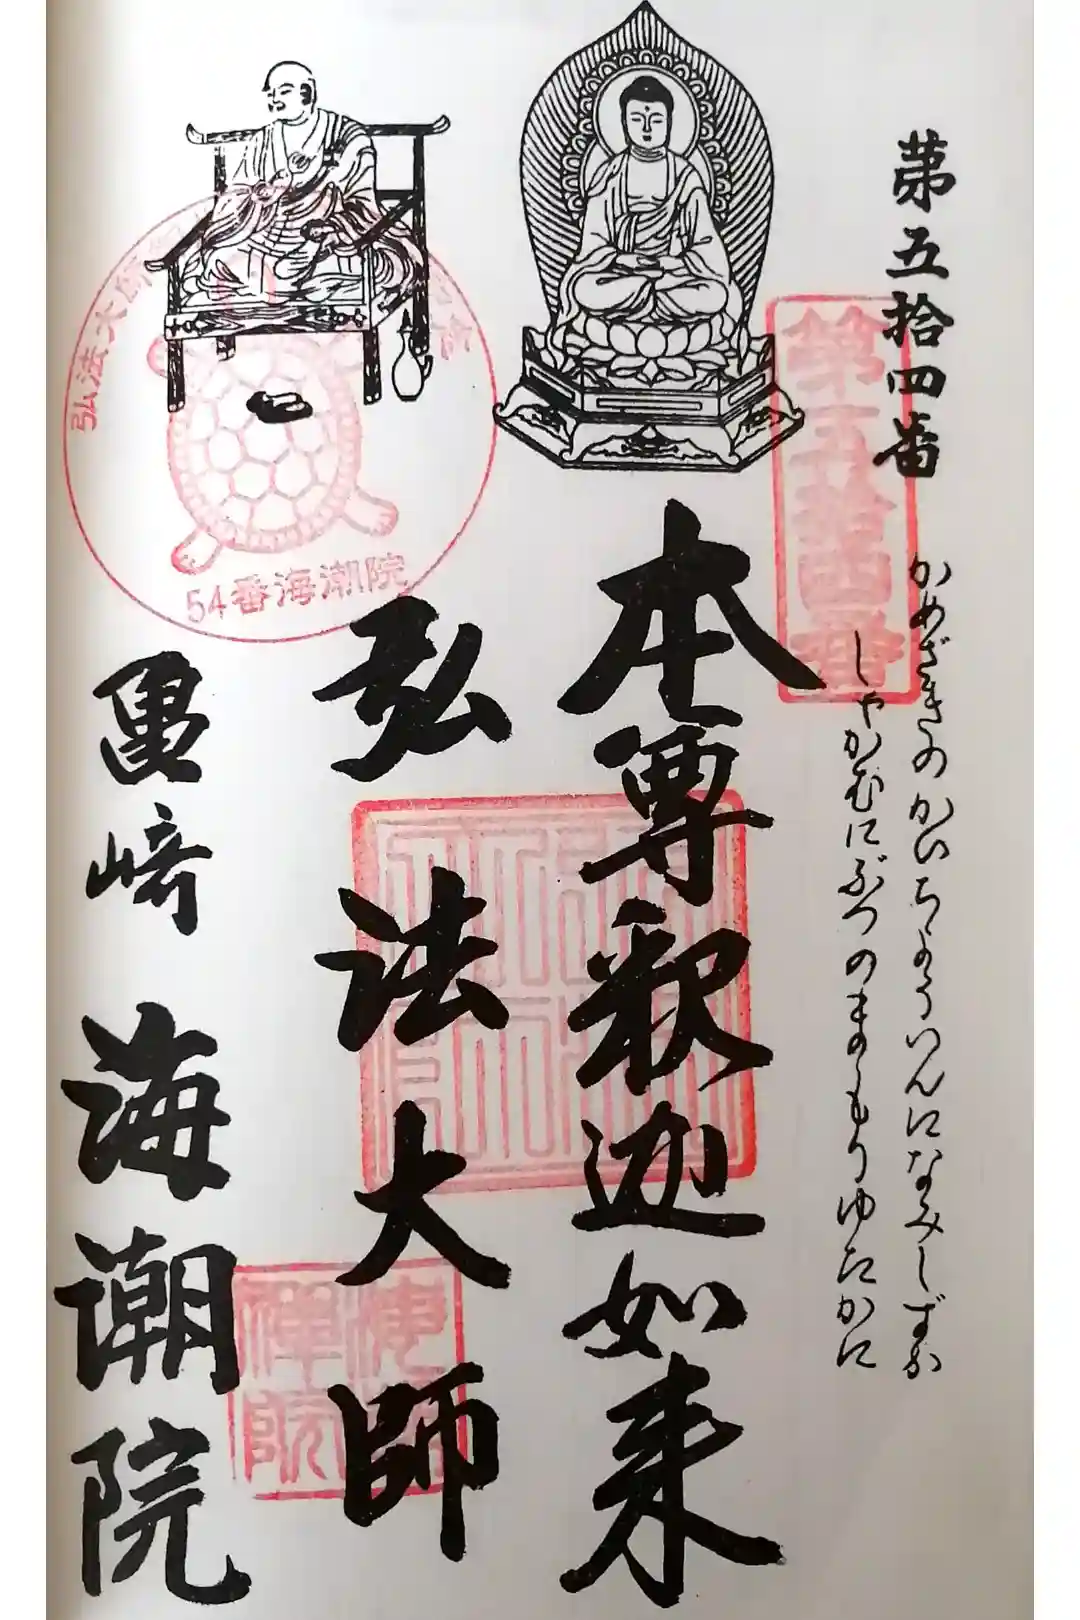 第五拾四番
かめざきのかいちょういんになみしずか
しゃかむにぶつのまもりゆたかに
本尊釈迦如来
弘法大師
亀崎 海潮院
第五拾四番
弘法大師
54番海潮院